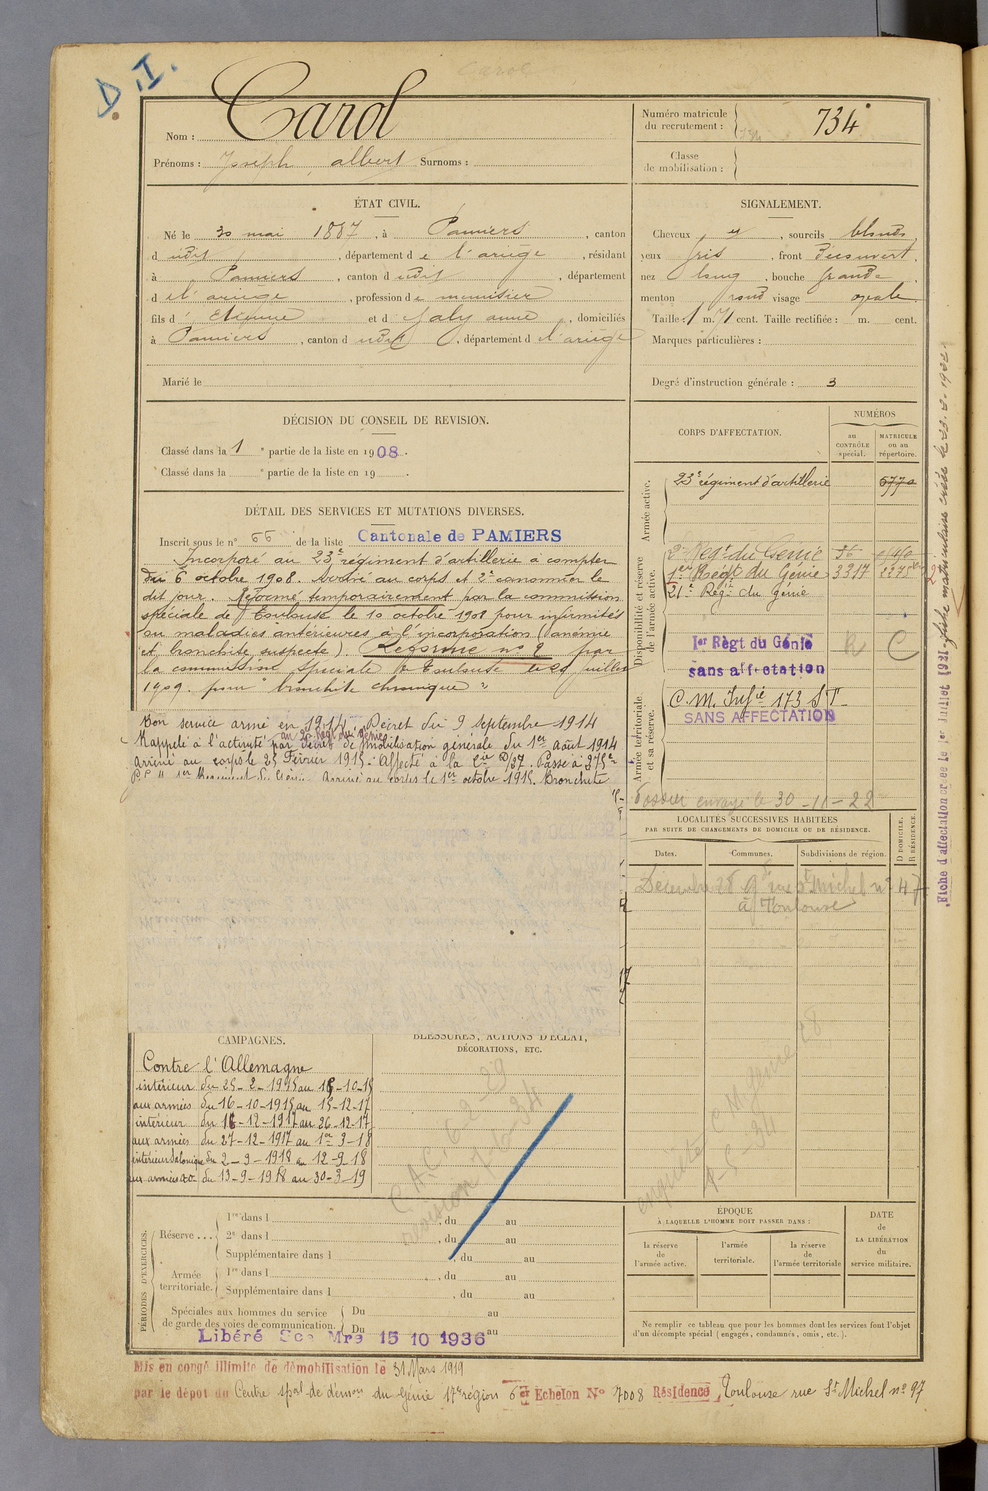 D.I.
Carol
Nom : Carol
Prénoms : Joseph albert Surnoms :
Numéro matricule du recrutement : 734
Classe de mobilisation :
ÉTAT CIVIL.
Né le 30 mai 1887, à Pamiers, canton
d udit, département de l'ariège, résidant
à Pamiers, canton d udit, département
d e l'ariège, profession de menuisier
fils d' Etienne et d Galy anne, domiciliés
à Pamiers, canton d udit, département d e l'ariège
Marié le
SIGNALEMENT.
Cheveux et, sourcils blonds,
yeux gris, front découvert,
nez long, bouche grande
menton rond visage ovale
Taille : 1 m. 71 cent. Taille rectifiée : m. cent.
Marques particulières :
Degré d'instruction générale : 3
DÉCISION DU CONSEIL DE REVISION.
Classé dans la 1 e partie de la liste en 1908.
Classé dans la e partie de la liste en 19
DÉTAIL DES SERVICES ET MUTATIONS DIVERSES.
Inscrit sous le n° 66 de la liste Cantonale de PAMIERS
Incorporé au 23e régiment d'artillerie à compter
du 6 octobre 1908. Arrivé au corps et 2e canonnier le
dit jour. Réformé temporairement par la commission
spéciale de Toulouse le 10 octobre 1908 pour infirmités
ou maladies antérieures à l'incorporation (anémie
et bronchite suspecte). Réformé n° 2 par
la commission spéciale de Toulouse le juillet
1909. pour "bronchite chronique"
Bon service armé en 1914 Décret du 9 septembre 1914
au 2e Regt du génie
Rappelé à l'activité par décret de mobilisation générale du 1er Août 1914
arrivé au corps le 25 Février 1915. Affecté à la Cie D/27. Passé à
1er Régiment du Génie. Arrivé au corps le 1er octobre 1915. Bronchite
CORPS D'AFFECTATION.
NUMÉROS
au CONTRÔLE spécial.
MATRICULE ou au répertoire.
Armée active.
23e régiment d'artillerie
Disponibilité et réserve de l'armée active.
2e Regt du Génie 56
1er Régt du Génie 3317
21e Regt du génie
Ier Règt du Génie R C
sans affectation
Armée territoriale et sa réserve.
C.M. Infie 173 ST
SANS AFFECTATION
Dossier envoyé le 30-11-22
LOCALITÉS SUCCESSIVES HABITÉES
PAR SUITE DE CHANGEMENTS DE DOMICILE OU DE RÉSIDENCE.
Dates.
Communes.
Subdivisions de région.
D DOMICILE. R RÉSIDENCE.
Decembre 28 rue St Michel n° 47
à Toulouse
enquête C M génie 28
CAMPAGNES.
Contre l'Allemagne
intérieur du 25-2-1915 au 15-10-15
aux armées du 16-10-1915 au 15-12-17
intérieur du 16-12-1917 au 26-12-17
aux armées du 27-12-1917 au 1er 3-18
intérieur Salonique du 2-9-1918 au 12-9-18
aux armées ao du 13-9-1918 au 30-3-19
BLESSURES, ACTIONS D'ÉCLAT,
DÉCORATIONS, ETC.
PÉRIODES D'EXERCICES.
Réserve...
1re dans l , du au
2e dans l , du au
Supplémentaire dans l , du au
Armée territoriale.
1re dans l , du au
Supplémentaire dans l , du au
Spéciales aux hommes du service de garde des voies de communication.
Du au
Du au
Libéré Sce Mre 15 10 1936
ÉPOQUE
À LAQUELLE L'HOMME DOIT PASSER DANS :
la réserve de l'armée active.
l'armée territoriale.
la réserve de l'armée territoriale
DATE de LA LIBÉRATION du service militaire.
Ne remplir ce tableau que pour les hommes dont les services font l'objet
d'un décompte spécial (engagés, condamnés, omis, etc.).
Mis en congé illimité de démobilisation le 31 Mars 1919
par le dépôt du Centre spal de démon du Génie 17e région 6e Echelon N° 7008 Résidence Toulouse rue St Michel n° 97
Fiche d'affectation créée le 1er Juillet 1931
fiche matriculaire créée le